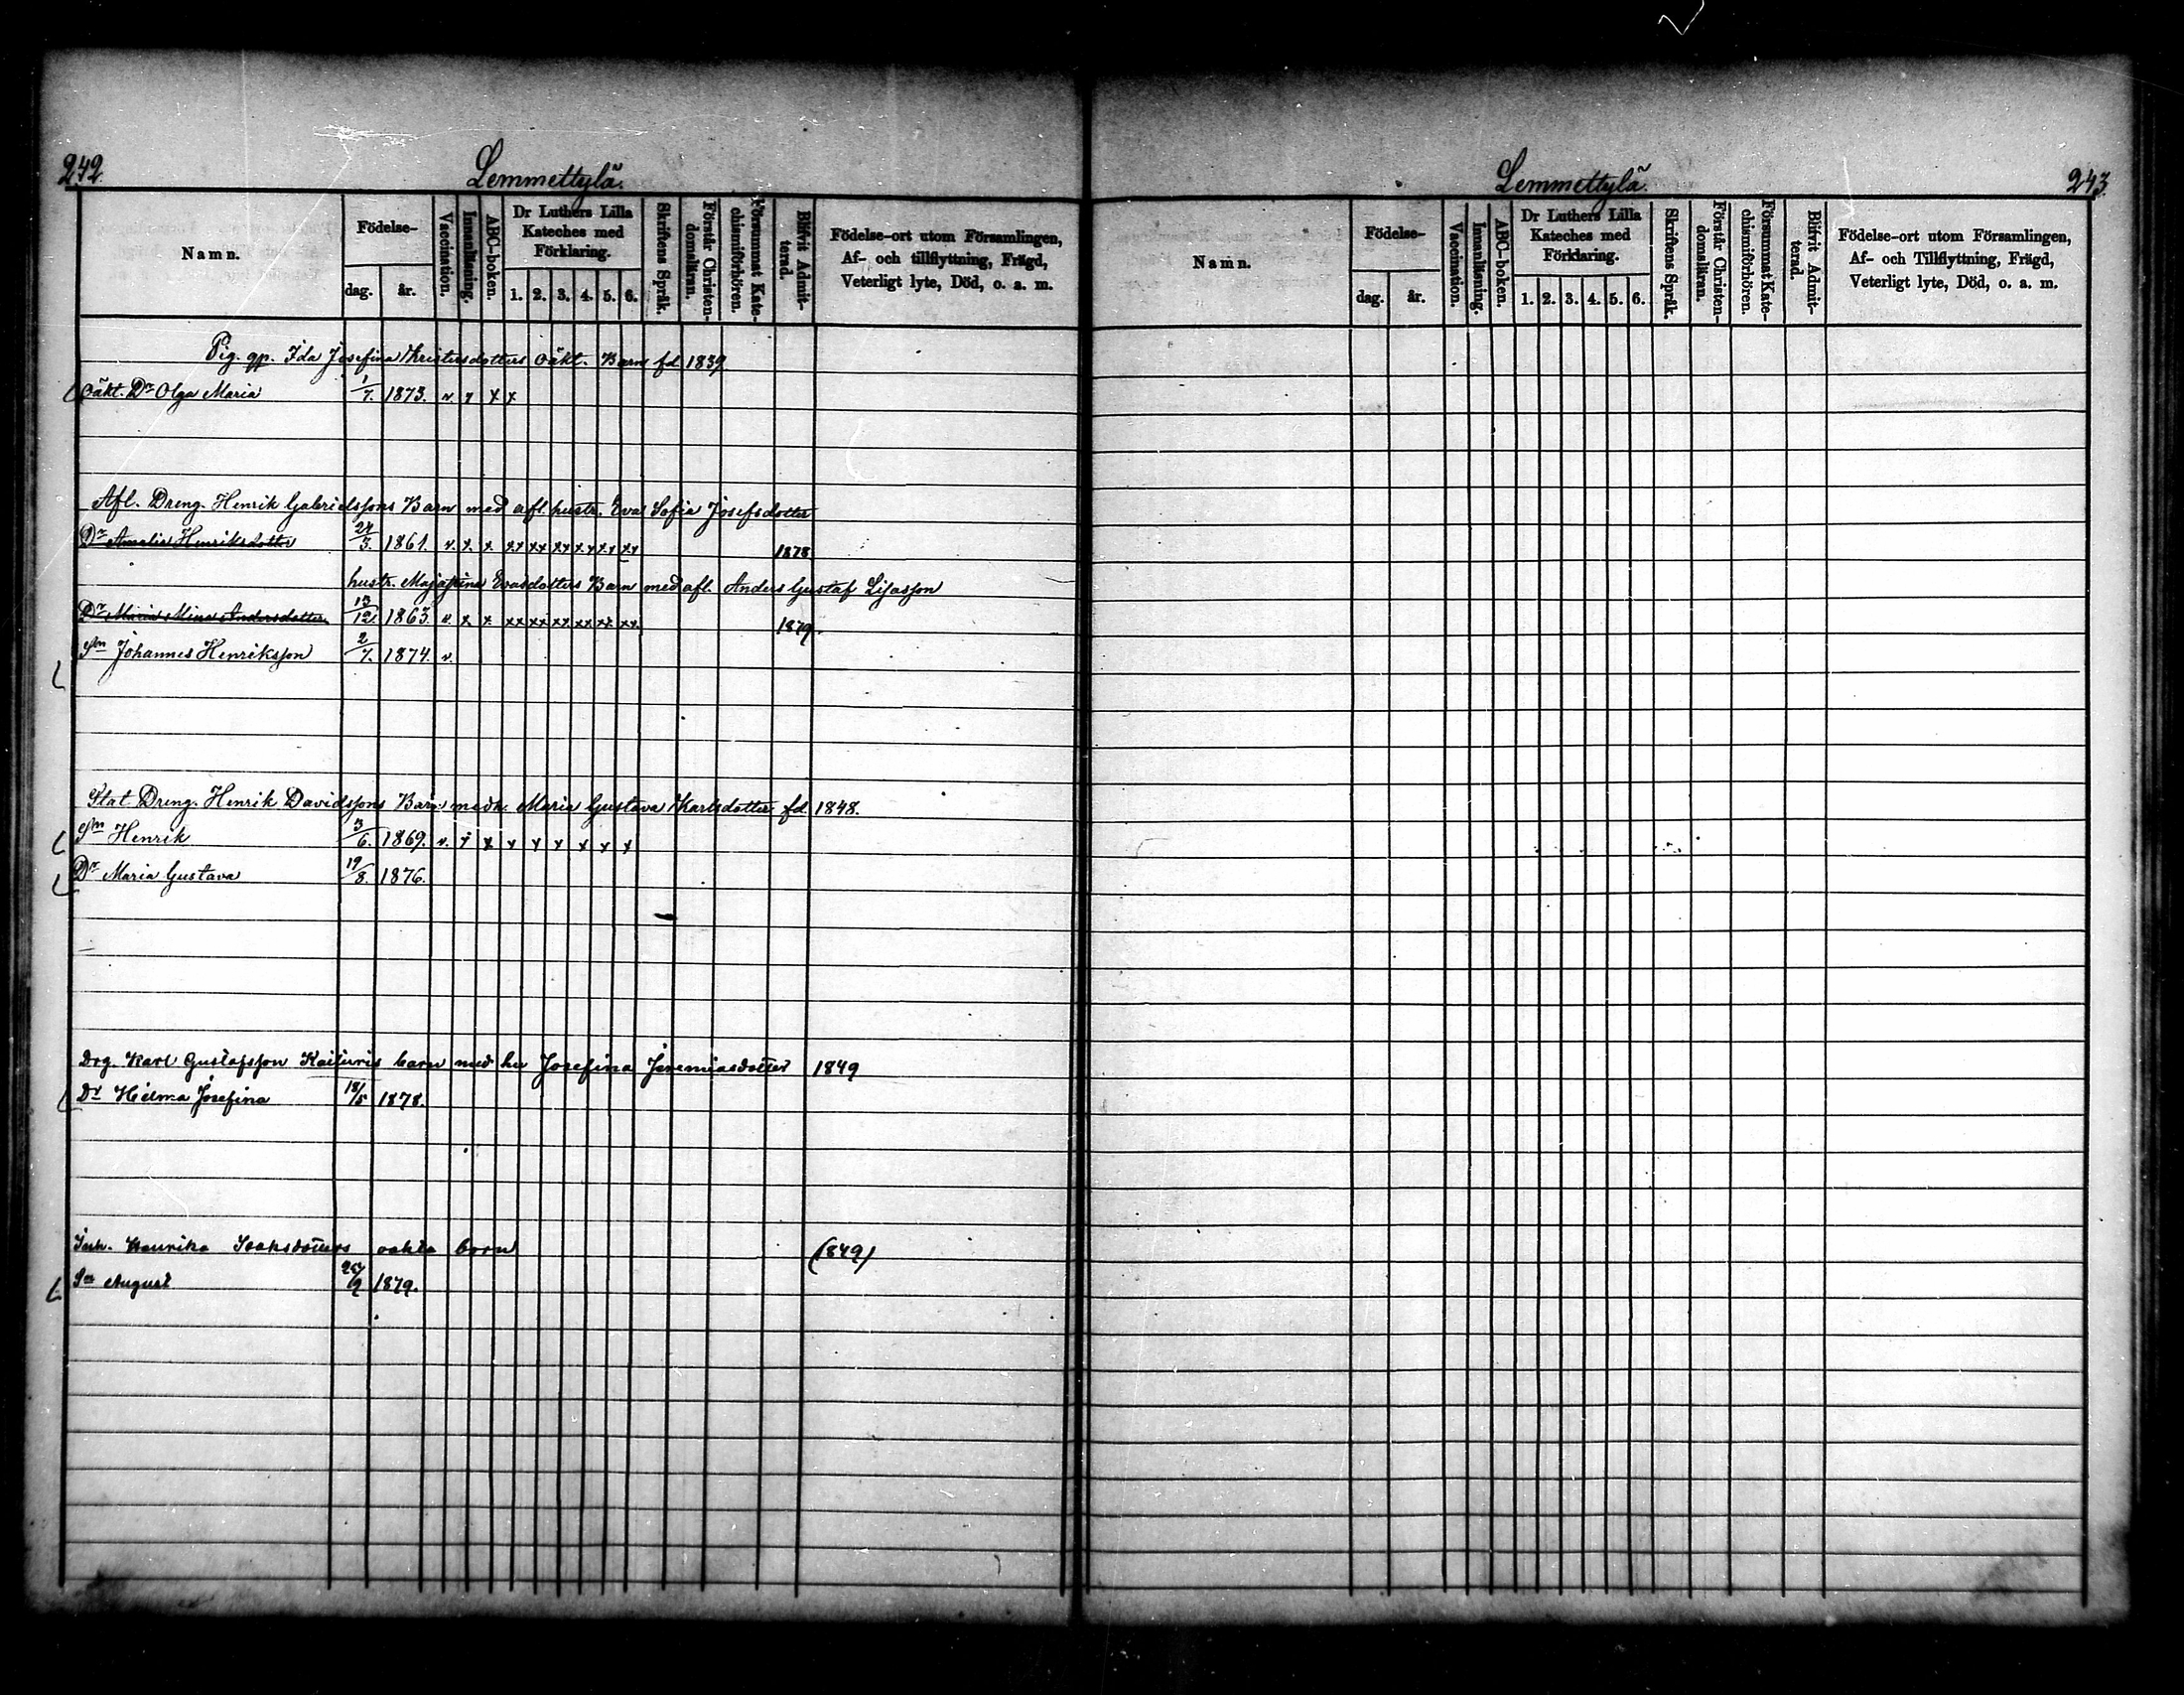 242.
Lemmettylä.
Namn.
Födelse-
dag.
år.
Vaccination.
Innanläsning.
ABC-boken.
Dr Luthers Lilla Kateches med Förklaring.
1. 2. 3. 4. 5. 6.
Skriftens Språk.
Förstår Christen-domsläran.
Försummat Kate-chismiförhören.
Blifvit Admit-terad.
Födelse-ort utom Församlingen,
Af- och tillflyttning, Frägd,
Veterligt lyte, Död, o. a. m.
Pig. gp. Ida Josefina Kristersdotters oäkt. Barn fd. 1839
Oäkt. Dr Olga Maria 1/7. 1873. v. x x x
Afl. Dreng. Henrik Gabrielssons Barn med afl. hustr. Eva Sofia Josefsdotter
Dr Amalia Henriksdotter 24/3. 1861. v. x. x xx xx xx xx xx xx 1878
hustr. Maja Evasdotters Barn med afl. Anders Gustaf Lisasson
Dr Maria Mina Andersdotter. 13/12. 1863. v. x x xx xx xx xx xx xx. 1879.
Sn Johannes Henriksson 2/7. 1874. v.
Stat Dreng. Henrik Davidssons Barn med h. Maria Gustava Karlsdotter fd 1848.
Sn Henrik 3/6. 1869. v. x x x x x x x x
Dr Maria Gustava 19/8. 1876.
Drg. Karl Gustafsson barn med hu Josefina Jeremiasdotter 1849
Dr Hilma Josefina 18/5 1878.
Inh. Henrika Isaksdotters oakta barn (1849)
Sn August 1879.
Lemmettylä.
243.
Namn.
Födelse-
dag.
år.
Vaccination.
Innanläsning.
ABC-boken.
Dr Luthers Lilla Kateches med Förklaring.
1. 2. 3. 4. 5. 6.
Skriftens Språk.
Förstår Christen-domsläran.
Försummat Kate-chismiförhören.
Blifvit Admit-terad.
Födelse-ort utom Församlingen,
Af- och Tillflyttning, Frägd,
Veterligt lyte, Död, o. a. m.